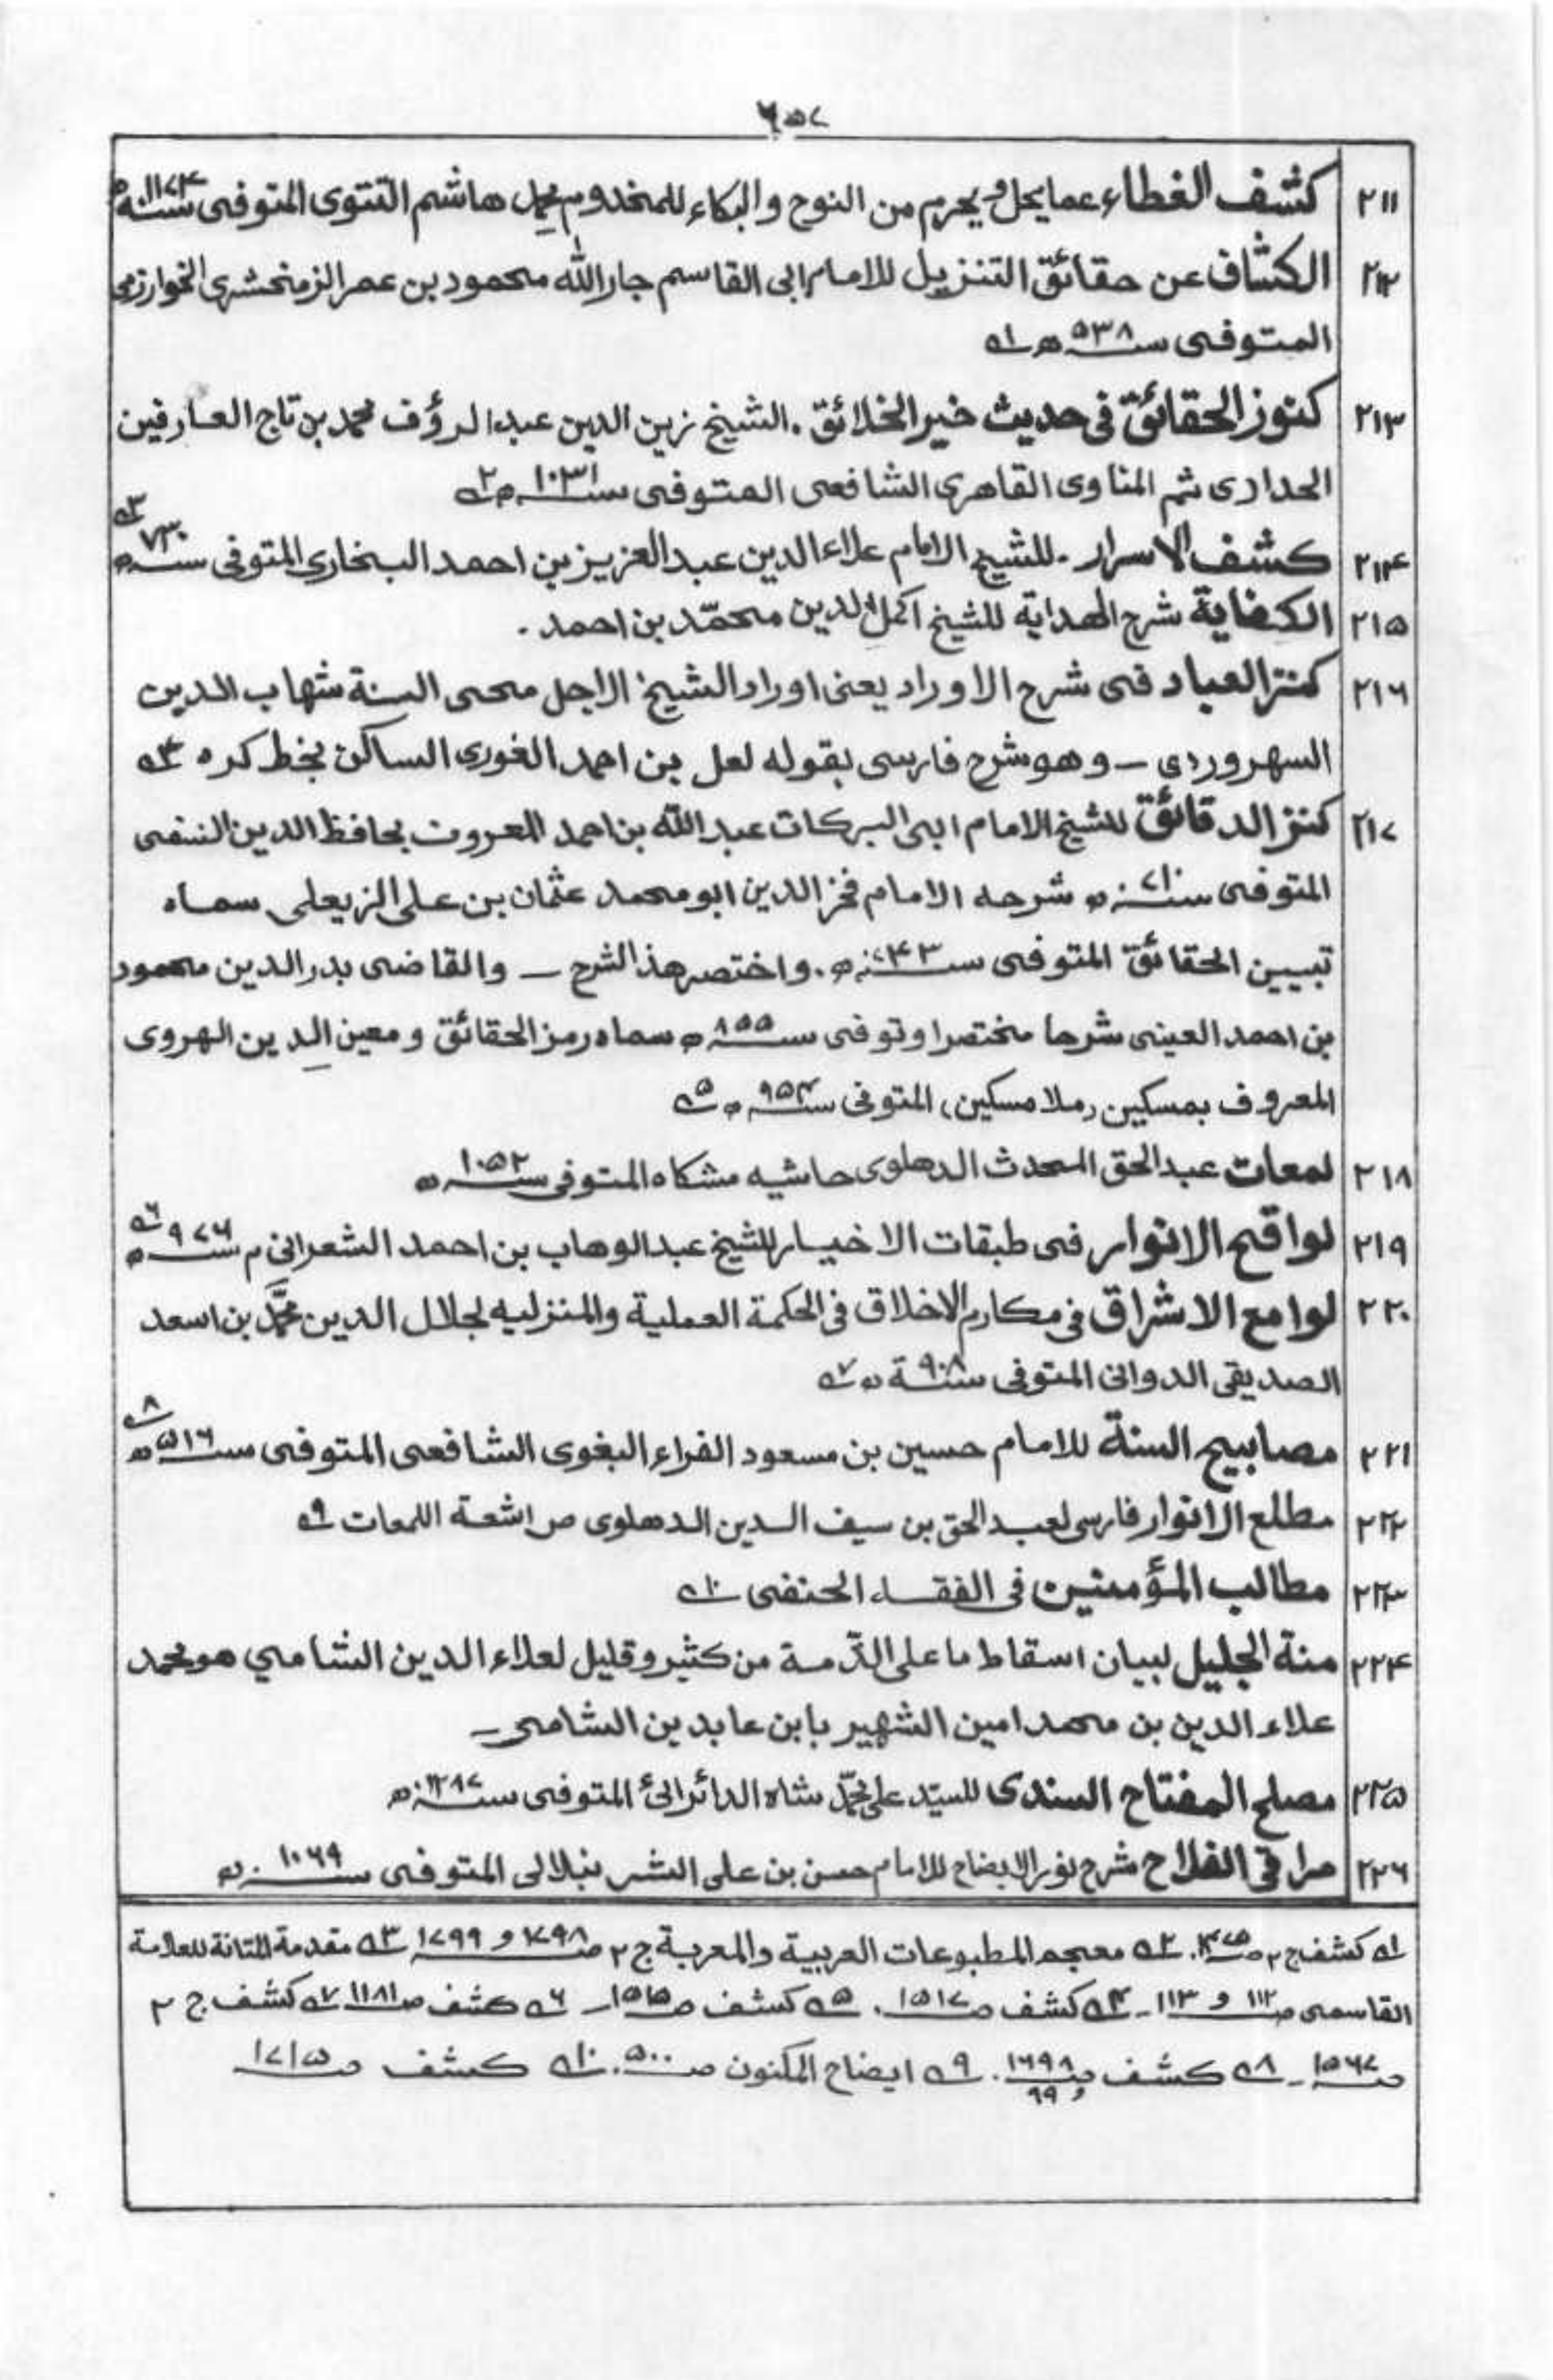 ٦٥٧
٢١١ كشف الغطاء عما يحل و يحرم من النوح والبكاء للمخدوم محمد هاشم التتوى المتوفى سنه ١١٧٤ھ
٢١٢ الكشاف عن حقائق التنزيل للامام ابى القاسم جار الله محمود بن عمر الزمخشرى الخوارزمى
المتوفى سنه ٥٣٨ھ ١ه
٢١٣ كنوز الحقائق فى حديث خير الخلائق . الشيخ زين الدين عبد الرؤف محمد بن تاج العارفين
الحدادى ثم المناوى القاهرى الشافعى المتوفى سنه ١٠٣١ھ ٢ه
٢١٤ كشف الاسرار - للشيخ الامام علاء الدين عبد العزيز بن احمد البخارى المتوفى سنه ٧٣٠ھ ٣ه
٢١٥ الكفاية شرح الهداية للشيخ اكمل الدين محمّد بن احمد .
٢١٦ كنز العباد فى شرح الاوراد يعنى اوراد الشيخ الاجل محى السنة شهاب الدين
السهروردى — وهو شرح فارسى بقوله لعل بن احمد الغورى الساكن بخط كره ٤ه
٢١٧ كنز الدقائق للشيخ الامام ابى البركات عبد الله بن احمد المعروف بحافظ الدين النسفى
المتوفى سنه ٧١٠ھ شرحه الامام فخر الدين ابو محمد عثمان بن على الزيعلى سماه
تبيين الحقائق المتوفى سنه ٧٤٣ھ . واختصر هذ الشرح — والقاضى بدر الدين محمود
بن احمد العينى شرحا مختصرا وتوفى سنه ٨٥٥ھ سماه رمز الحقائق و معين الدين الهروى
المعروف بمسكين (ملا مسكين) المتوفى سنه ٩٥٤ھ ٥ه
٢١٨ لمعات عبد الحق المحدث الدهلوى حاشيه مشكاه المتوفى سنه ١٠٥٢ھ
٢١٩ لواقح الانوار فى طبقات الاخيار للشيخ عبد الوهاب بن احمد الشعرانى م سنه ٩٧٦ھ ٦ه
٢٢٠ لوامع الاشراق فى مكارم الاخلاق فى الحكمة العملية والمنزليه لجلال الدين محمَّد بن اسعد
الصديقى الدوانى المتوفى سنة ٩٠٨ھ ٧ه
٢٢١ مصابيح السنة للامام حسين بن مسعود الفراء البغوى الشافعى المتوفى سنه ٥١٦ھ ٨ه
٢٢٢ مطلع الانوار فارسى لعبد الحق بن سيف الدين الدهلوى ص اشعة اللمعات ٩ه
٢٢٣ مطالب المؤمنين فى الفقه الحنفى ١٠ه
٢٢٤ منة الجليل لبيان اسقاط ما على الذّمة من كثير و قليل لعلاء الدين الشامي هو محمد
علاء الدين بن محمد امين الشهير بابن عابدين الشامى —
٢٢٥ مصلح المفتاح السندى للسيّد على محمّد شاه الدائرائى المتوفى سنه ١٢٨٧ھ
٢٢٦ مراقى الفلاح شرح نور الايضاح للامام حسن بن على الشرنبلالى المتوفى سنه ١٠٦٩ھ
١ه كشف ج ٢ ص ١٤٧٥. ٢ه معجم المطبوعات العربية والمعربة ج ٢ ص ١٧٩٨ و ١٧٩٩ ٣ه مقدمة المتانة للعلامة
القاسمى ص ١١٢ و ١١٣ - ٤ه كشف ص ١٥١٧ . ٥ه كشف ص ١٥١٥ - ٦ه كشف ص ١١٨١ ٧ه كشف ج ٢
ص ١٥٦٧ - ٨ه كشف ص ١٦٩٨ و ٩٩ . ٩ه ايضاح المكنون ص ٥٠٠ . ١٠ه كشف ص ١٧١٥